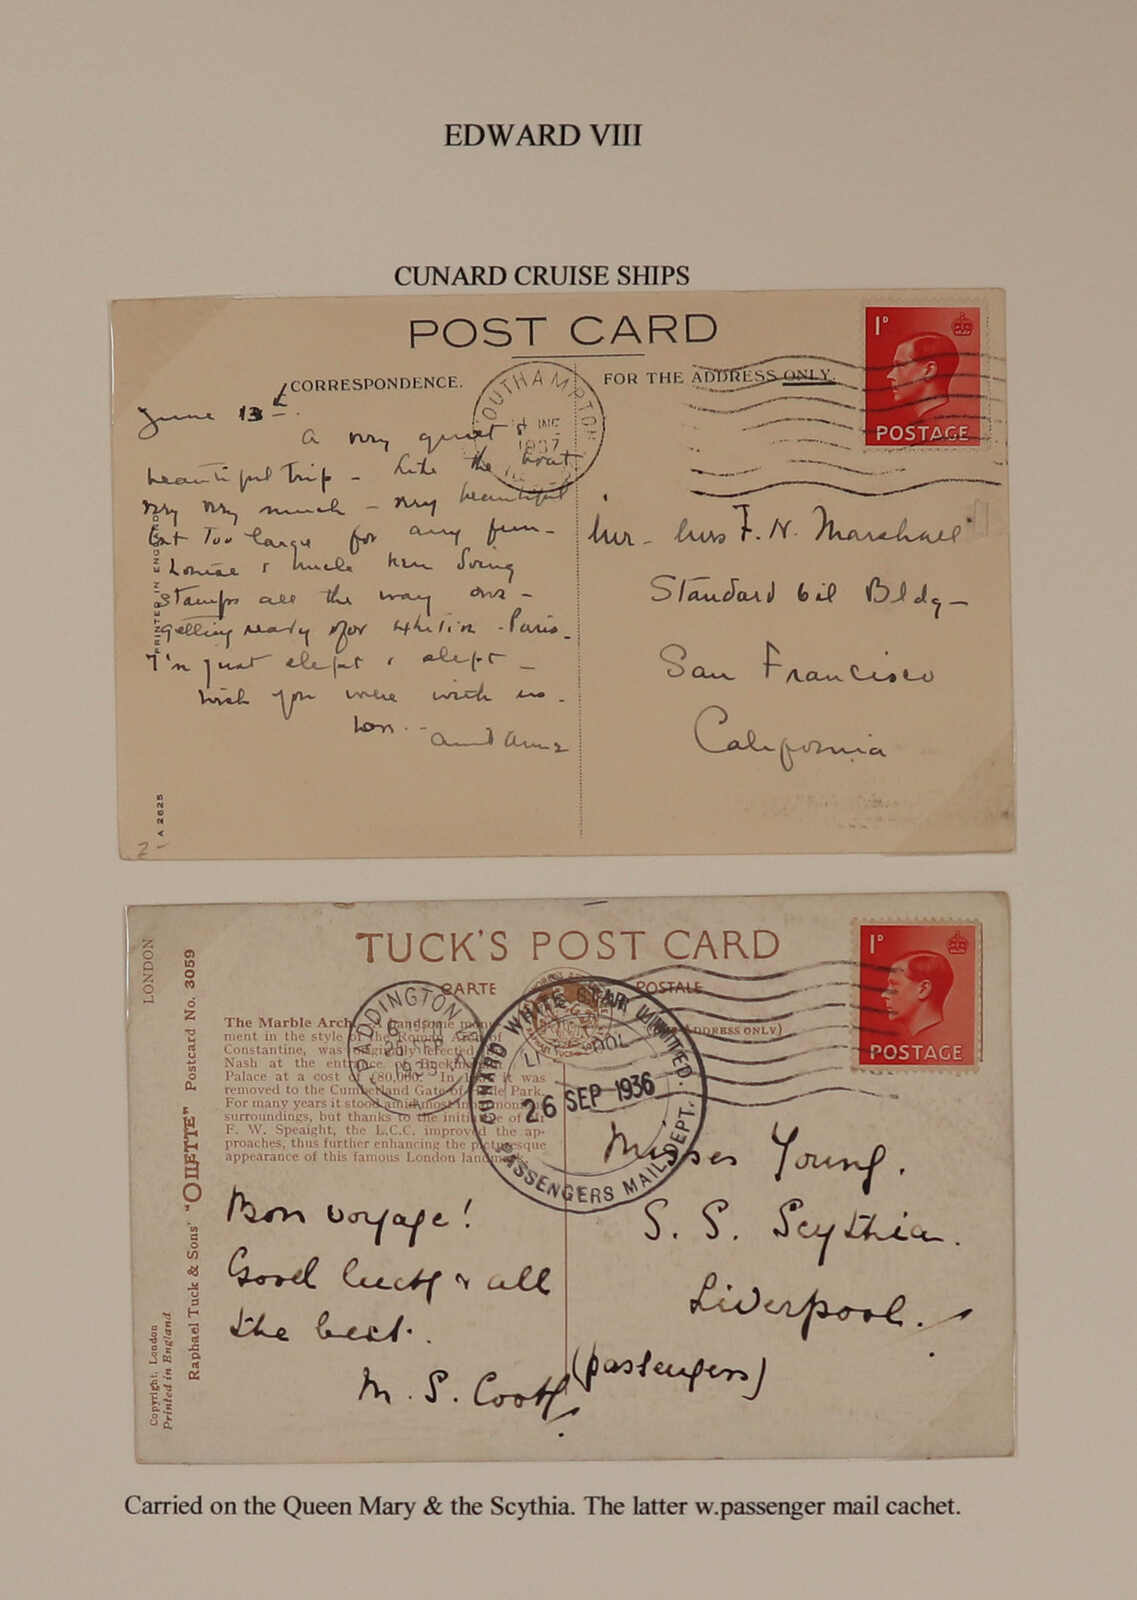 EDWARD VIII
CUNARD CRUISE SHIPS
POST CARD
CORRESPONDENCE.
FOR THE ADDRESS ONLY.
1D
POSTAGE
SOUTHAMPTON
1937
June 13
A very quiet &
beautiful trip - Like the boat
very very much - very beautiful
but too large for any fun -
Louise & Uncle Ken doing
stamps all the way over -
getting ready for Paris -
I'm just slept & slept -
Wish you were with us -
Love -
Aunt Anna
PRINTED IN ENGLAND
A 2625
2-
Mr - Mrs F. N. Marshall
Standard Oil Bldg -
San Francisco
California
TUCK'S POST CARD
CARTE POSTALE
(ADDRESS ONLY.)
1D
POSTAGE
PADDINGTON W.
1936
CUNARD WHITE STAR LIMITED.
LIVERPOOL
26 SEP 1936
PASSENGERS MAIL DEPT.
LONDON
Raphael Tuck & Sons' "OILETTE" Postcard No. 3059
Copyright. London
Printed in England
The Marble Arch, a handsome monu-
ment in the style of the Roman Arch of
Constantine, was originally erected by
Nash at the entrance to Buckingham
Palace at a cost of £80,000. In it was
removed to the Cumberland Gate of Hyde Park.
For many years it stood amidst most inharmonious
surroundings, but thanks to the initiative of Mr
F. W. Speaight, the L.C.C. improved the ap-
proaches, thus further enhancing the picturesque
appearance of this famous London landmark.
Bon voyage!
Good luck & all
the best.
M. S. Cook
Misses Young.
S. S. Scythia.
Liverpool.
(passengers)
Carried on the Queen Mary & the Scythia. The latter w.passenger mail cachet.